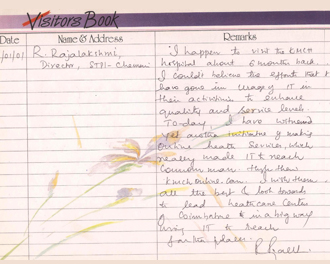 Visitors Book
Date Name & Address Remarks
/01/01 R. Rajalakshmi,
Director, STPI - Chennai
I happen to visit the KMCH
hospital about 6 months back.
I couldn't believe the effort that t
have gone in using IT in
their activities to enhance
quality and service levels.
To-day I have witnessed
yet another initiative of making
online heath Services, which
really made IT to reach
common man thro' their
kmchonline.com. I wish them
all the best & look towards
to lead heathcare Center
of Coimbatore & in a big way
using IT to reach
far the place.